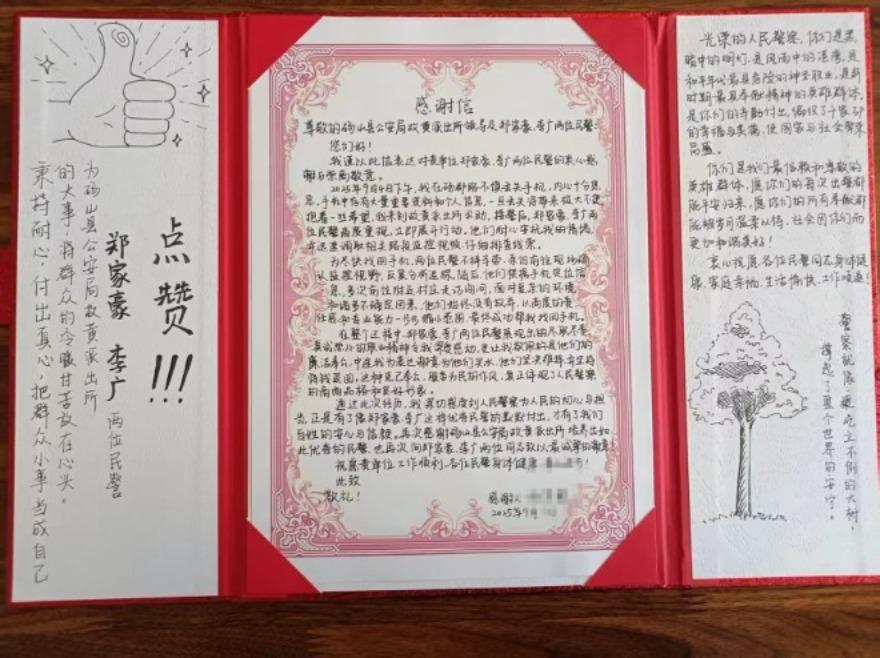 点赞!!!
为砀山县公安局故黄派出所
郑家豪 李广 两位民警
秉持耐心,付出真心,把群众小事当成自己
的大事,将群众的冷暖甘苦放在心头。
感谢信
尊敬的砀山县公安局故黄派出所领导及郑家豪、李广两位民警:
您们好!
我谨以此信表达对贵单位郑家豪、李广两位民警的衷心感
谢与崇高敬意。
2025年9月9日下午,我在砀郡路不慎丢失手机,内心十分焦
急,手机中存有大量重要资料和个人信息,一旦丢失将带来极大不便
抱着一丝希望,我来到故黄派出所求助。接警后,郑家豪、李广两位
民警高度重视,立即展开行动。他们耐心安抚我的情绪,
并迅速调取相关路段监控视频,仔细排查线索。
为尽快找回手机,两位民警不辞辛劳,亲自前往现场确
认监控视野,反复分析追踪。随后,他们根据手机定位信
息,多次前往附近村庄走访询问,面对复杂的环境
和诸多不确定因素,他们始终没有放弃,以高度的责
任感和专业能力一步步缩小范围,最终成功帮我找回手机。
在整个过程中,郑家豪、李广两位民警展现出的尽职尽责
的精神令我深受感动,更让我敬佩的是他们的
廉洁奉公,中途我为表达谢意为他们买水,他们坚决推辞并坚持
将钱退回,这种克己奉公、服务为民的作风,真正体现了人民警察
的高尚品格和良好形象。
通过此次经历,我深切感受到人民警察为人民的初心与担
当,正是有了像郑家豪、李广这样优秀民警的默默付出,才有了我们
百姓的安心与信赖。再次感谢砀山县公安局故黄派出所培养出如
此优秀的民警,也再次向郑家豪、李广两位同志致以最诚挚的敬意!
祝愿贵单位工作顺利,各位民警身体健康
此致
敬礼!
感谢人
2025年9月
光荣的人民警察,你们是黑
暗中的明灯,是风雨中的港湾,是
和平年代最具危险的神圣职业,是新
时期最具奉献精神的英雄群体。
是你们的辛勤付出,编织了千家万户
的幸福与美满,使国家与社会繁荣
昌盛。
你们是我们最信赖和尊敬的
英雄群体,愿你们的每次出警都
能平安归来,愿你们的所有奉献都
能被岁月温柔以待,社会因你们而
更加和谐美好!
衷心祝愿各位民警同志身体健
康、家庭幸福、生活愉快、工作顺遂!
警察就像一棵屹立不倒的大树,
撑起了整个世界的安宁。